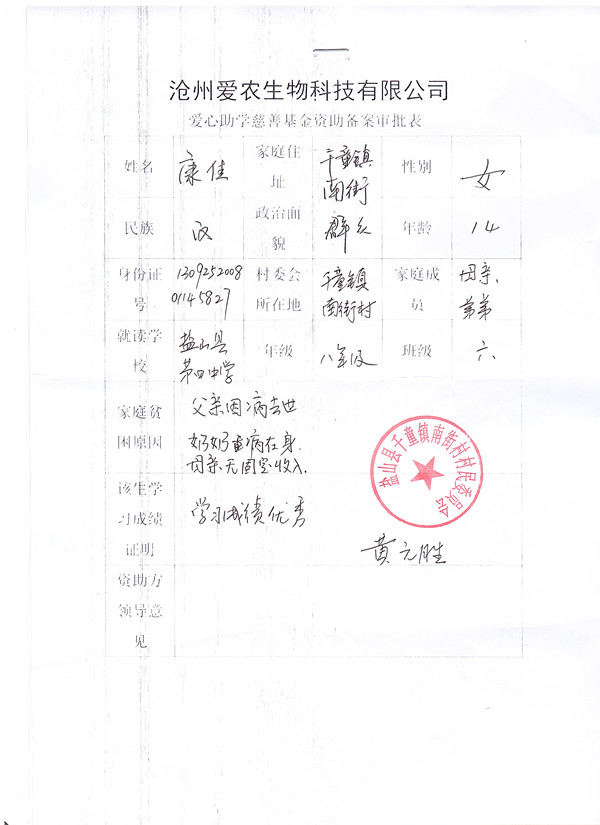 沧州爱农生物科技有限公司
爱心助学慈善基金资助备案审批表
姓名 康佳 家庭住址 千童镇南街 性别 女
民族 汉 政治面貌 群众 年龄 14
身份证号 130925200801145827 村委会所在地 千童镇南街村 家庭成员 母亲、弟弟
就读学校 盐山县第四中学 年级 八年级 班级 六
家庭贫困原因 父亲因病去世
奶奶重病在身.
母亲无固定收入.
该生学习成绩证明 学习成绩优秀
盐山县千童镇南街村村民委员会
黄元胜
资助方领导意见